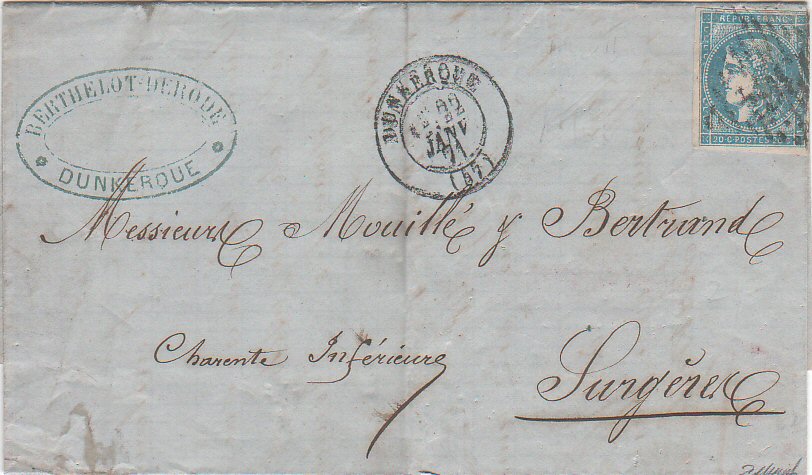 BERTHELOT-DERODE
DUNKERQUE
DUNKERQUE
22
JANV
71
(57)
REPUB·FRANC·
20·C·POSTES
Messieurs Mouillé & Bertrand
Charente Inférieure
Surgères